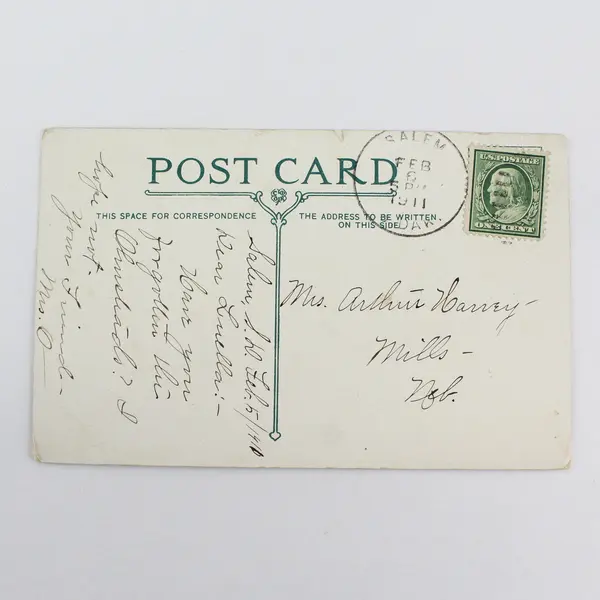 POST CARD
THIS SPACE FOR CORRESPONDENCE
THE ADDRESS TO BE WRITTEN
ON THIS SIDE
SALEM
FEB
6
5 PM
1911
DAK
U.S. POSTAGE
ONE CENT
Salem, S.D. Feb. 5/1911
Dear Luella:-
Have you
forgotten the
Olmsteads? I
hope not.
Your Friend-
Mrs. O
Mrs. Arthur Harvey-
Mills-
Neb.